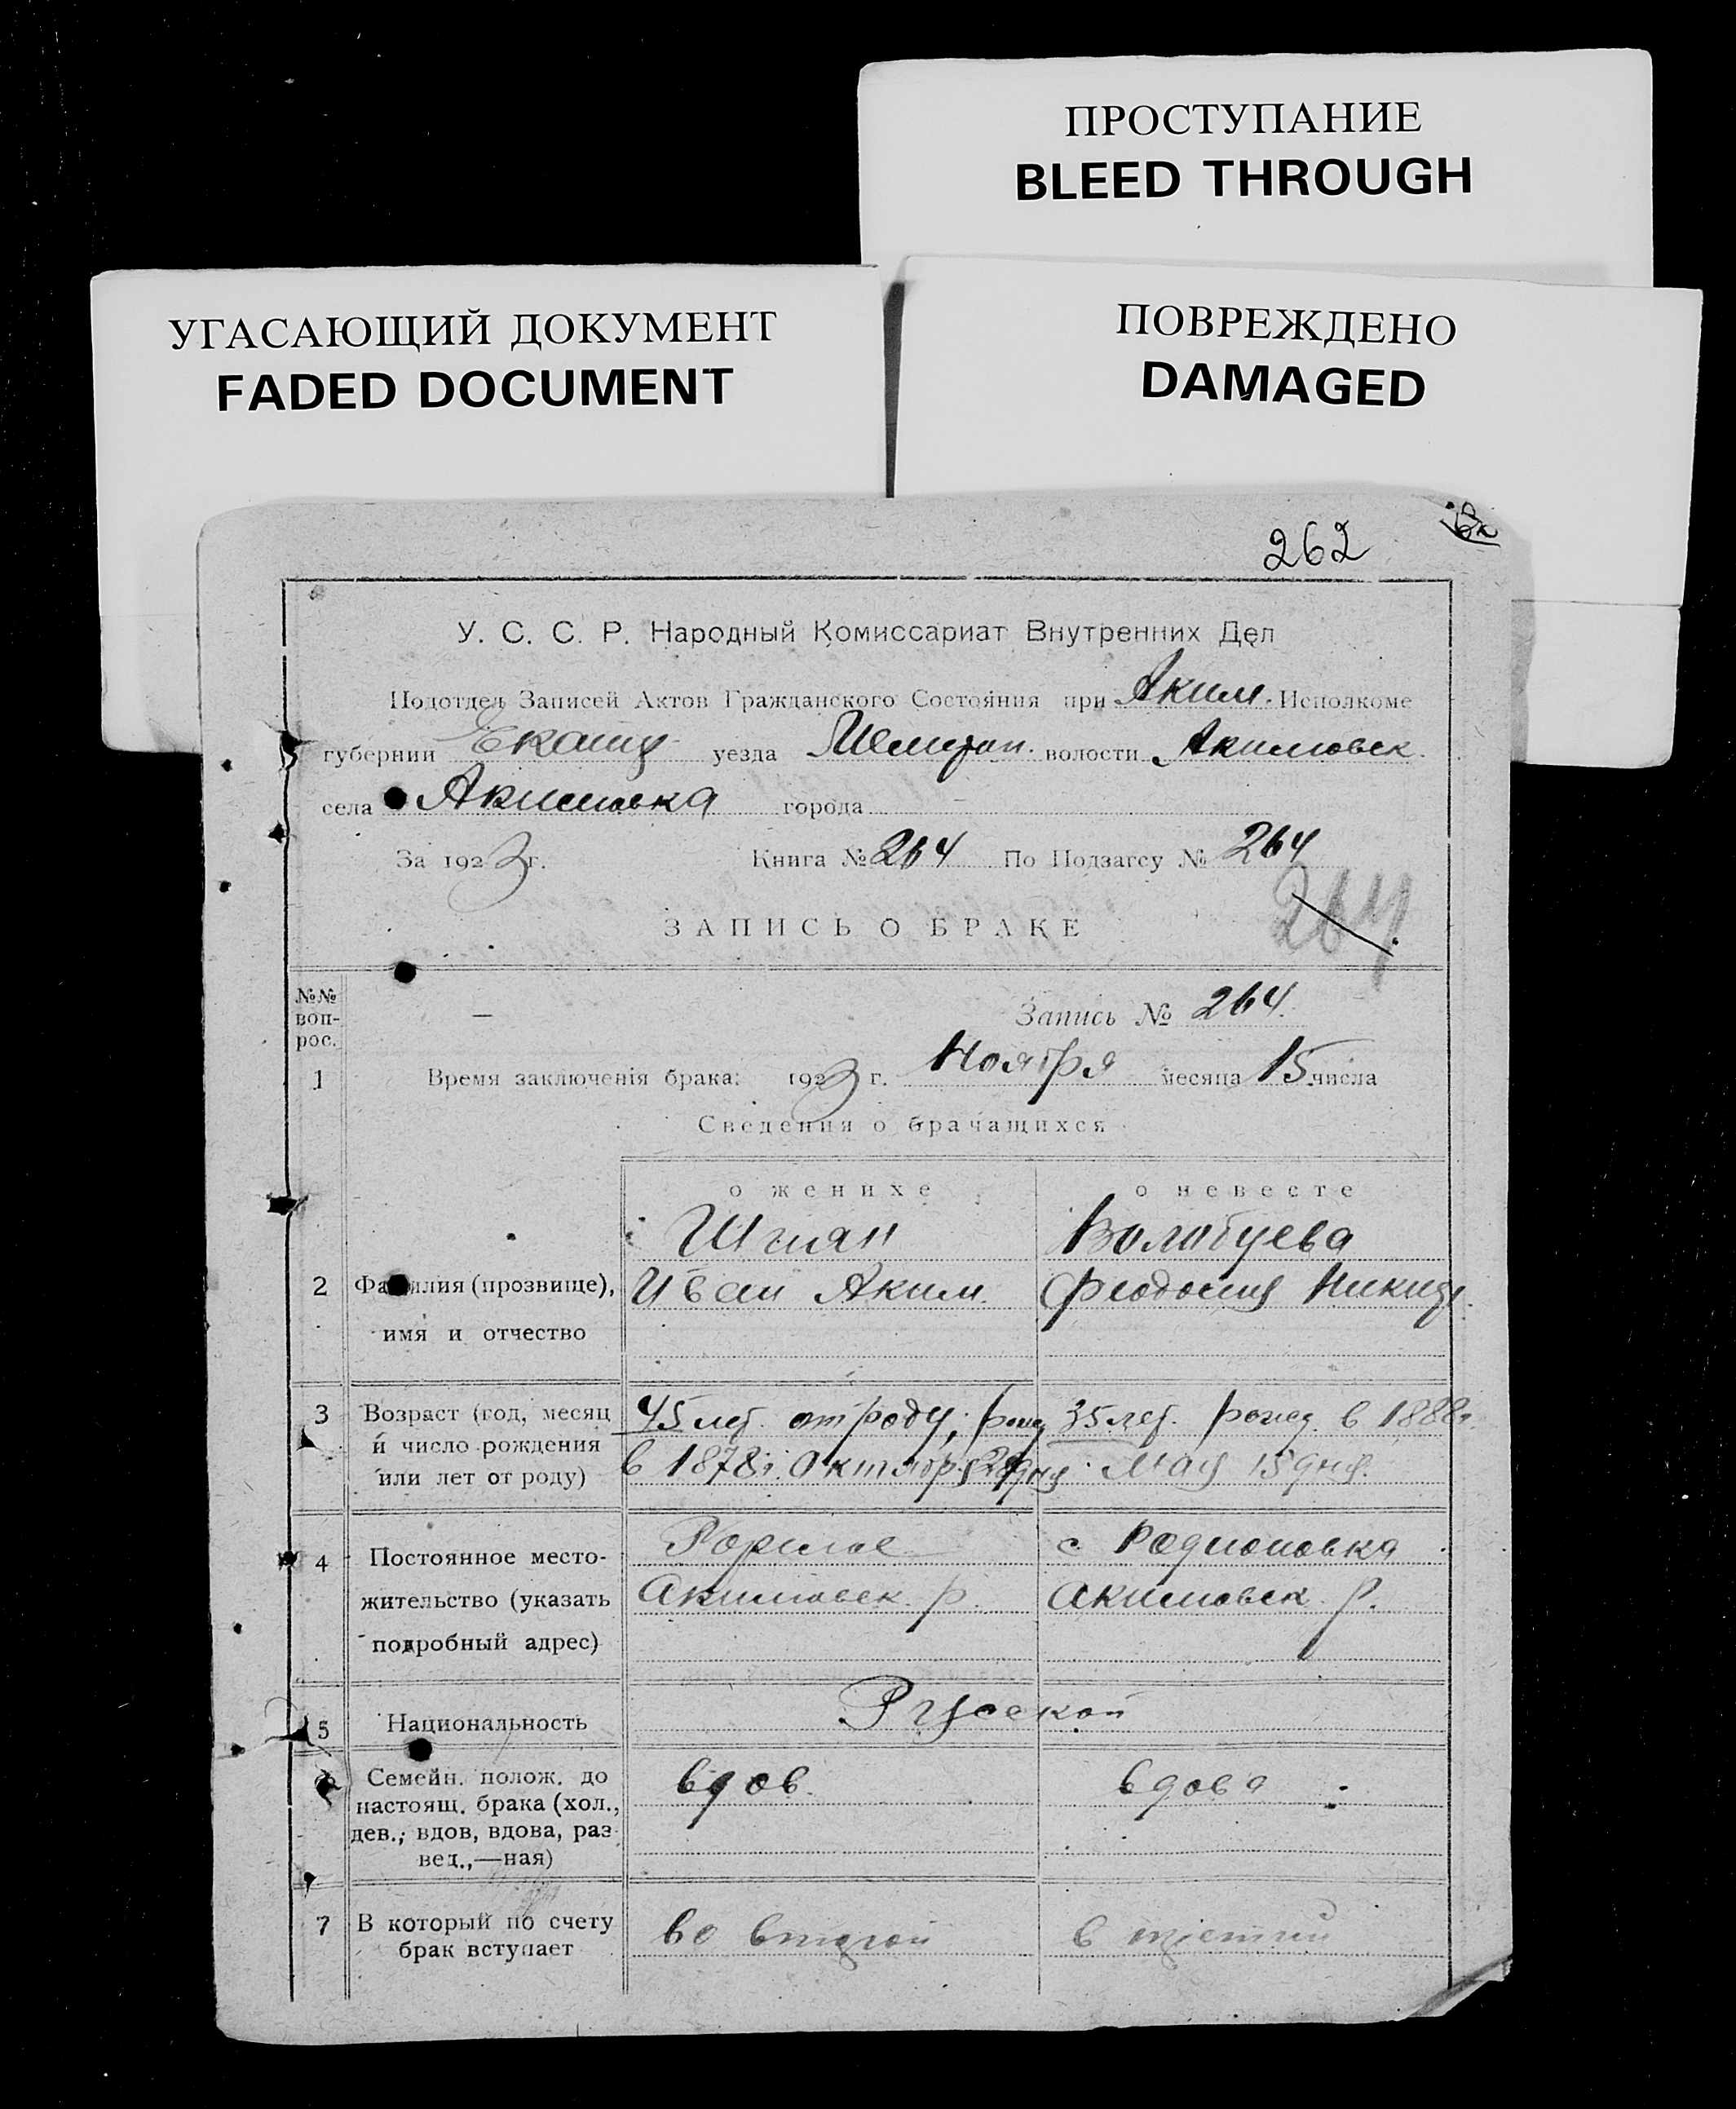 ПРОСТУПАНИЕ
BLEED THROUGH
УГАСАЮЩИЙ ДОКУМЕНТ
FADED DOCUMENT
ПОВРЕЖДЕНО
DAMAGED
262
У. С. С. Р. Народный Комиссариат Внутренних Дел
Подотдел Записей Актов Гражданского Состояния при Аким. Исполкоме
губернии Екат уезда Мелитоп. волости Акимовск.
села Акимовка города
За 1923 г. Книга № 264 По Подзагсу № 264
264
ЗАПИСЬ О БРАКЕ
№№ воп-рос.
Запись № 264.
1 Время заключенія брака: 1923 г. Ноября месяца 15 числа
Сведения о брачащихся
о женихе о невесте
Шпан Волобуева
2 Фамилия (прозвище), Иван Аким. Феодосия Никит.
имя и отчество
3 Возраст (год, месяц 45 лет. от роду, рожд 35 лет. рожд. в 1888г
и число рождения в 1878г. Октября дня Мая 15 дня.
или лет от роду)
4 Постоянное место- с. Родионовка
жительство (указать Акимовск. р. Акимовск. р.
подробный адрес)
5 Национальность Русской
Семейн. полож. до вдов. вдова
настоящ. брака (хол.,
дев., вдов, вдова, раз-
вед.,—ная)
7 В который по счету во второй в третий
брак вступает